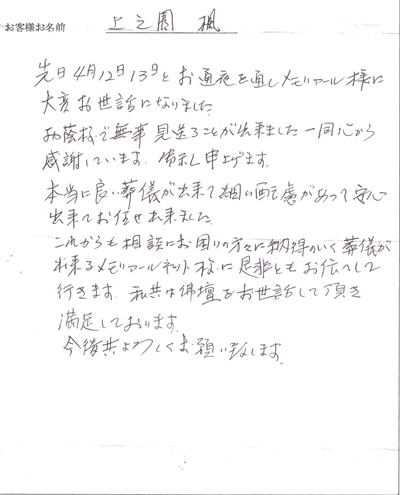 お客様お名前 上之園 楓
先日4月12日13日とお通夜を通しメモリアール様に
大変お世話になりました
お蔭様で無事見送ることが出来ました一同心から
感謝しています。 申し上げます。
本当に良い葬儀が出来て細い配慮があって安心
出来てお任せ出来ました
これからも相談にお困りの方々に納得のいく葬儀が
出来るメモリアールネット様に是非ともお伝へして
行きます。私共は佛壇をお世話して頂き
満足しております。
今後共よろしくお願い致します。